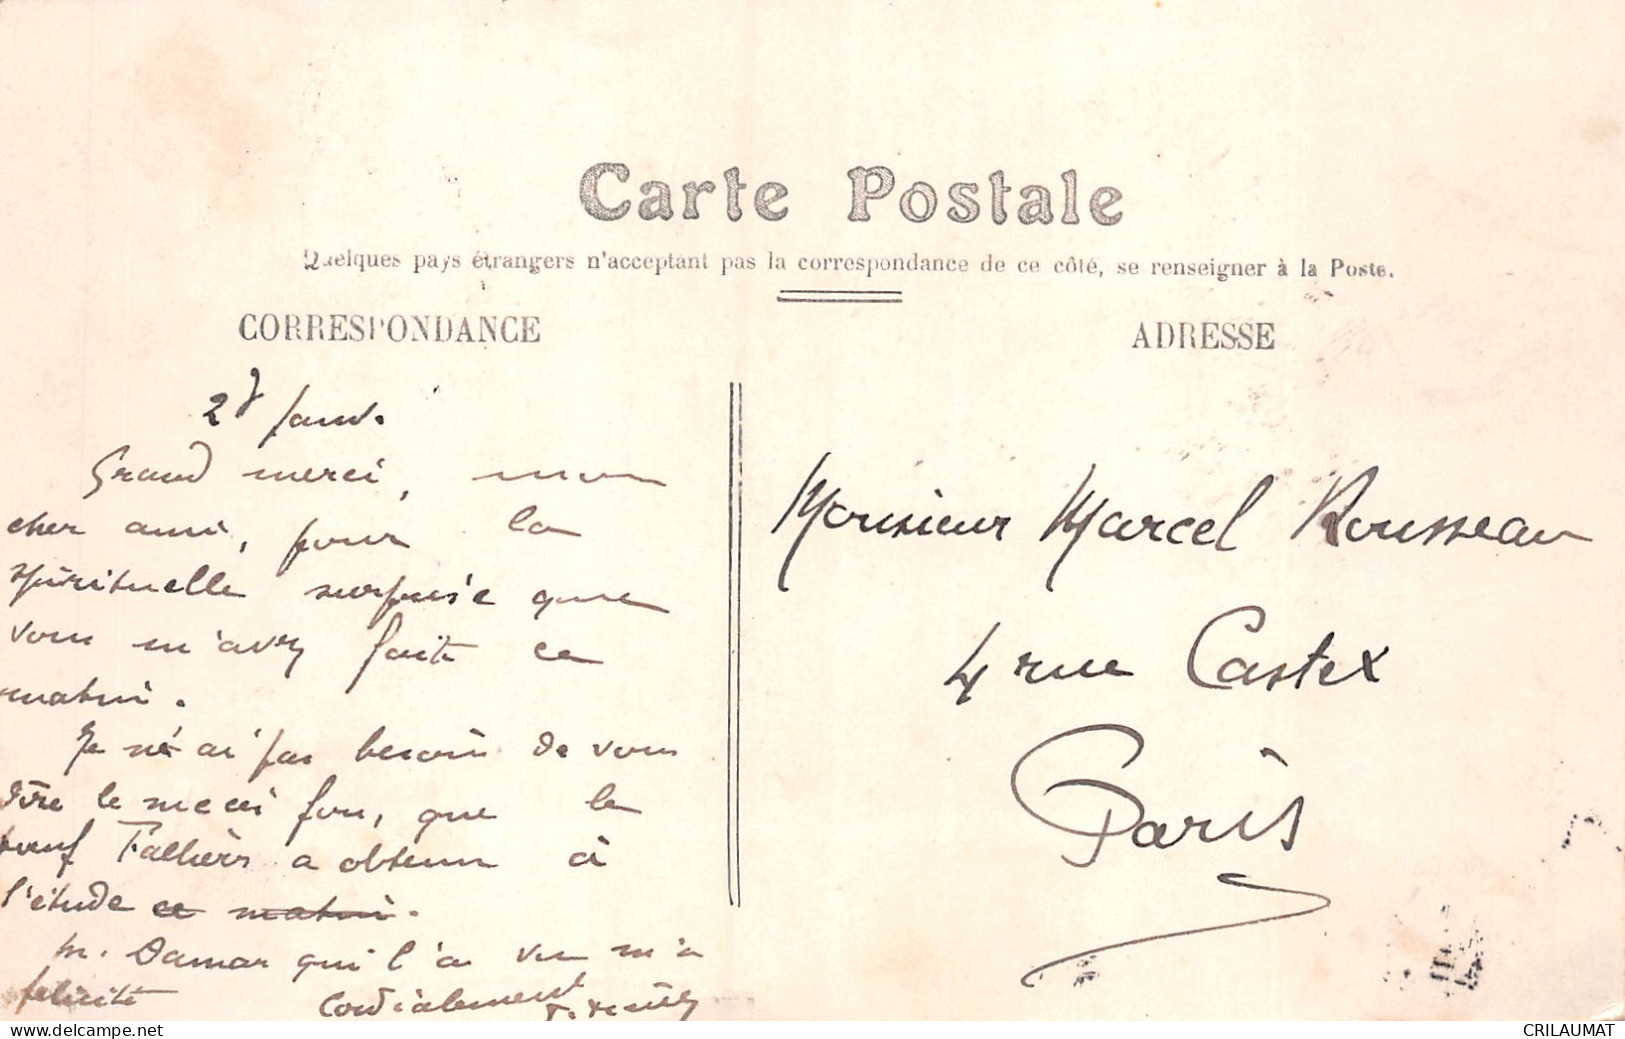 Carte Postale
Quelques pays étrangers n'acceptant pas la correspondance de ce côté, se renseigner à la Poste.
CORRESPONDANCE
Janv.
Grand merci, mon
cher ami, pour la
spirituelle surprise que
vous m'avez faite ce
matin.
Je n'ai pas besoin de vous
dire le succès fou, que le
bœuf Fallières a obtenu à
l'étude ce matin.
M. Damar qui l'a vu m'a
félicité Cordialement
ADRESSE
Monsieur Marcel Rousseau
4 rue Castex
Paris
CRILAUMAT